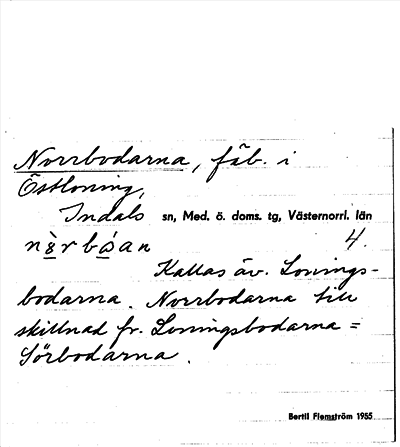 Norrbodarna, fäb. i
Östloning,
Indals sn, Med. ö. doms. tg, Västernorrl. län
n ȣ̀ r b ǻ a n 4.
Kallas äv. Lonings-
bodarna. Norrbodarna till
skillnad fr. Loningsbodarna =
Sörbodarna.
Bertil Flemström 1955